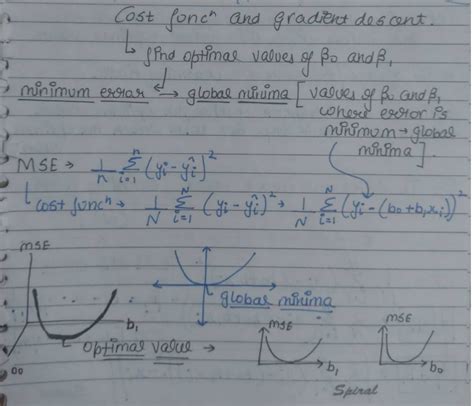 Cost funcⁿ and gradient descent.
↳ find optimal values of β0 and β1
minimum error ↔ global minima [values of β0 and β1
where error is
minimum → global
minima].
MSE → 1/n Σ_{i=1}^{n} (yi - ŷi)²
↳ cost funcⁿ → 1/N Σ_{i=1}^{N} (yi - ŷi)² → 1/N Σ_{i=1}^{N} (yi - (b0+b1xi))²
MSE
global minima
b1
optimal value →
MSE
b1
MSE
b0
Spiral